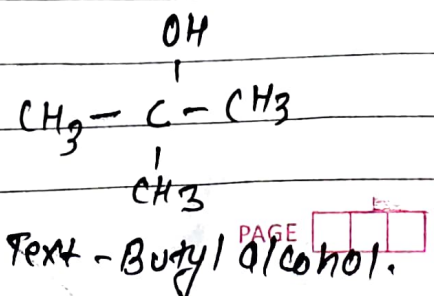 OH
CH3 - C - CH3
CH3
PAGE
Text - Butyl alcohol.